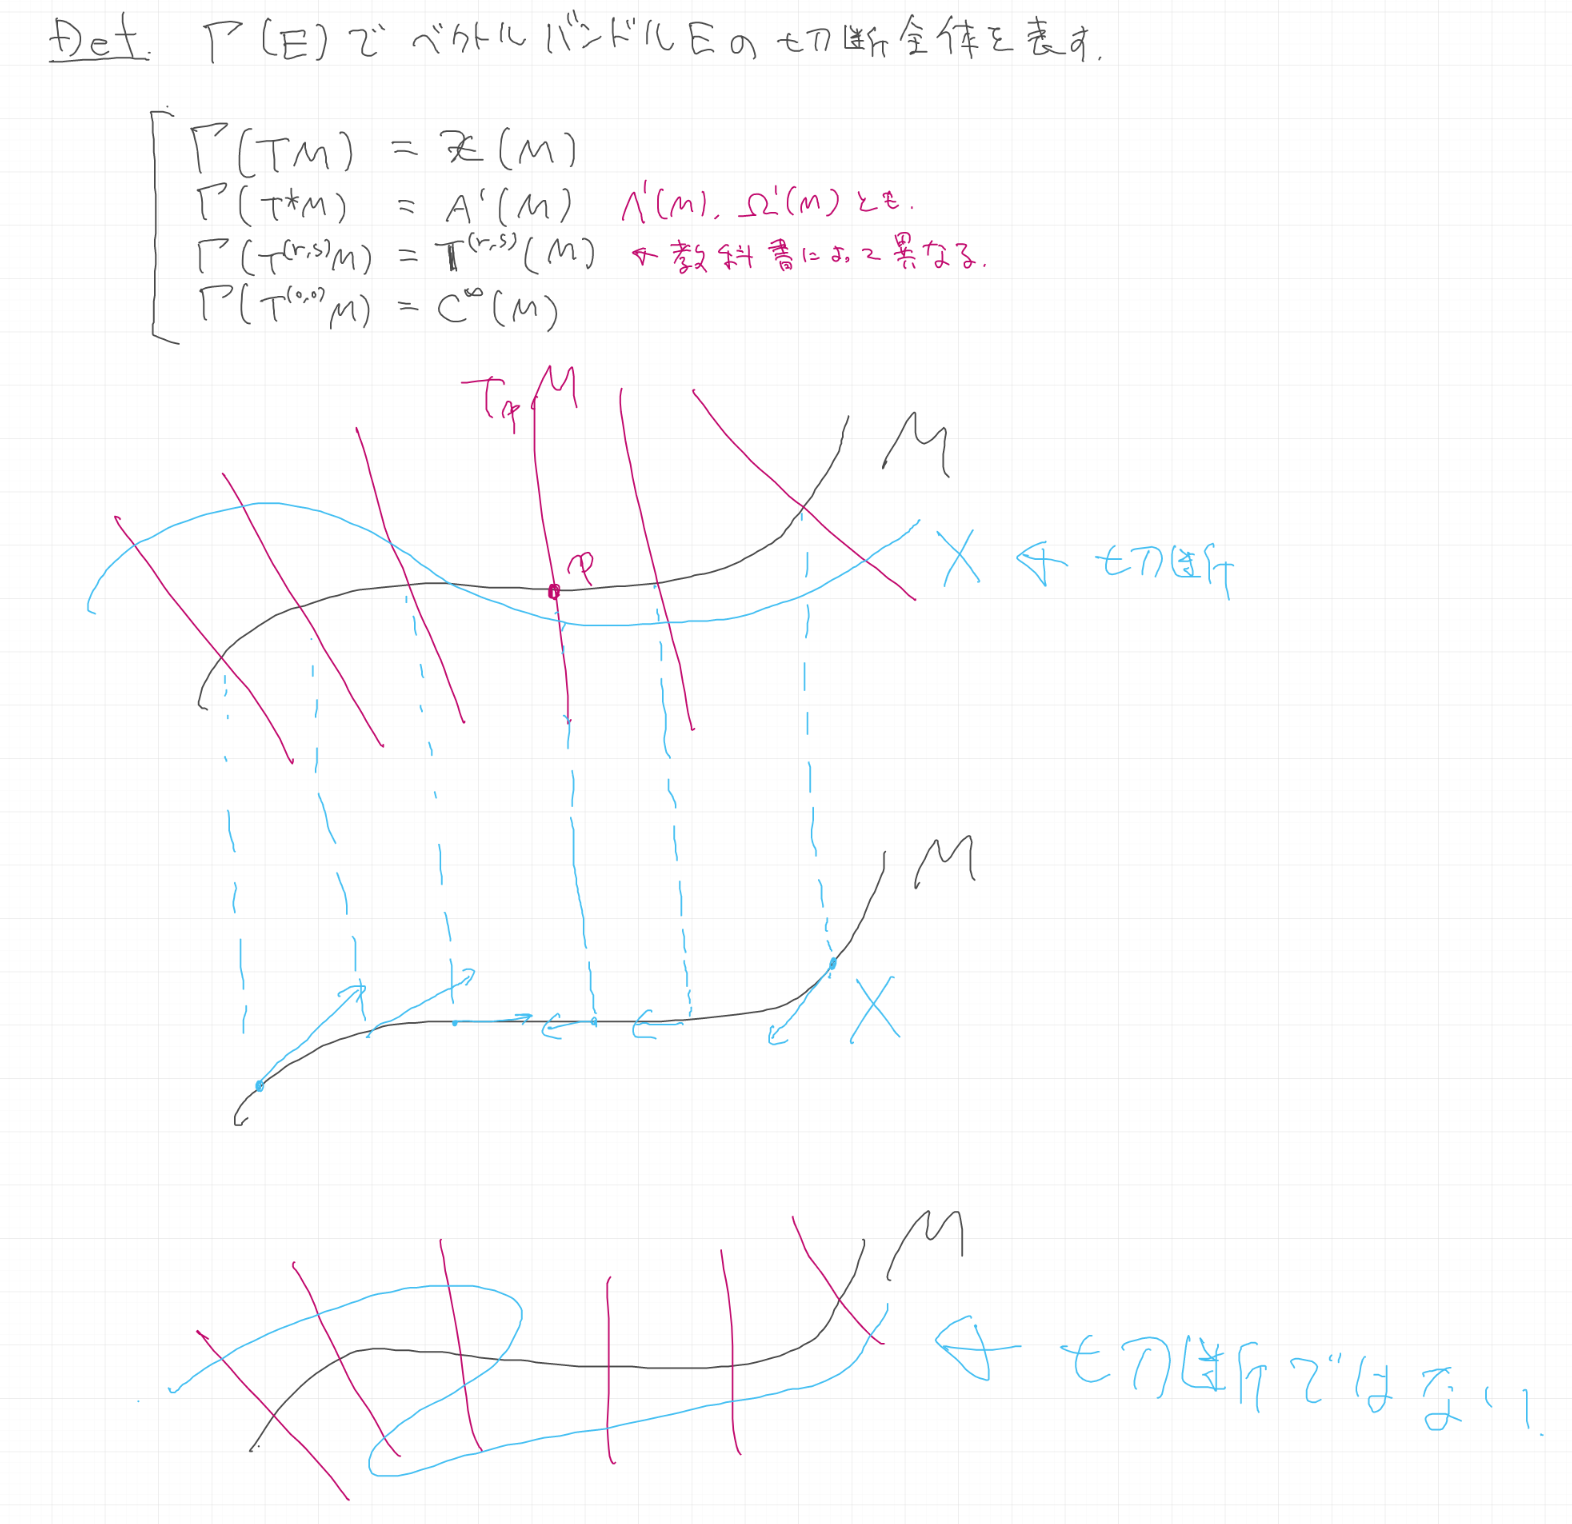 Def. Γ(E)で ベクトルバンドルEの切断全体を表す.
Γ(TM) = 𝔛(M)
Γ(T*M) = A¹(M) Λ¹(M), Ω¹(M)とも.
Γ(T^(r,s)M) = T^(r,s)(M) ← 教科書によって異なる.
Γ(T^(0,0)M) = C^∞(M)
TpM
M
p
X ← 切断
M
X
M
← 切断ではない.